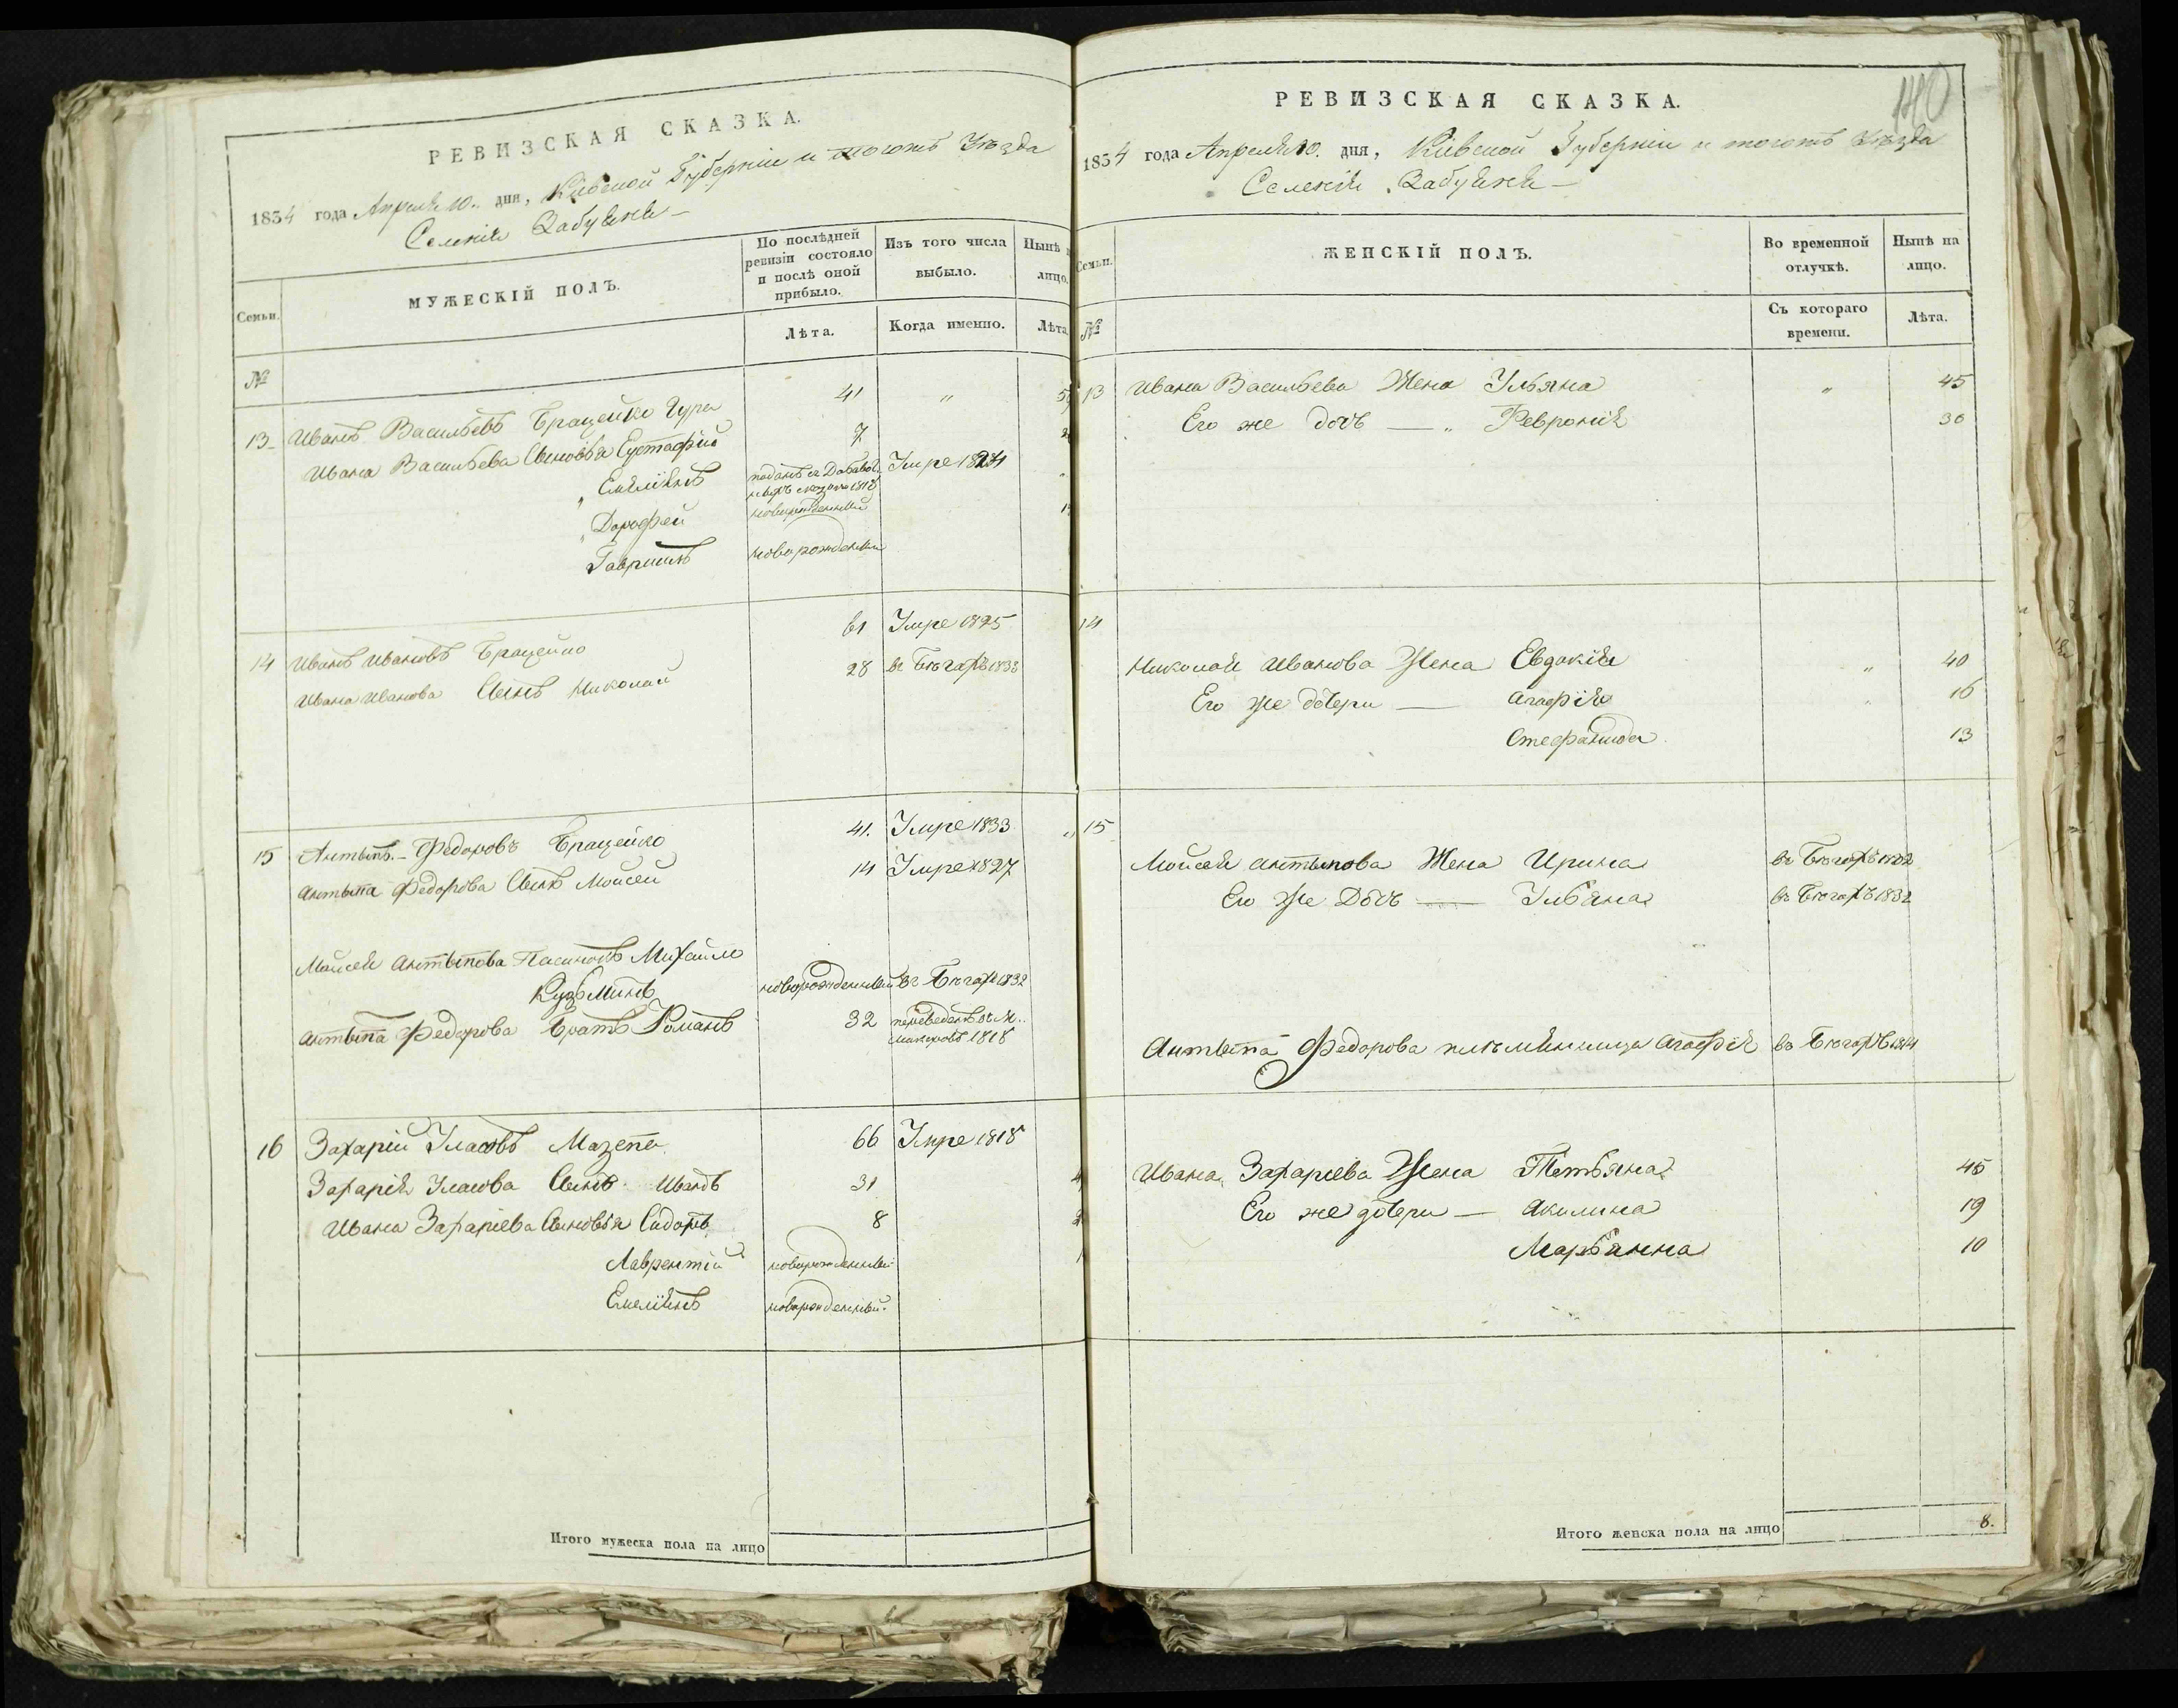 РЕВИЗСКАЯ СКАЗКА.
1834 года Апреля 10. дня, Кіевской Губерніи и тогожъ Уезда
Селенія
Семьи.
МУЖЕСКІЙ ПОЛЪ.
По послѣдней ревизіи состояло и послѣ оной прибыло.
Изъ того числа выбыло.
Нынѣ
лицо.
Лѣта.
Когда именно.
Лѣта.
№
13 Иванъ Васильевъ Брацейко 41 "
Ивана Васильева Сыновья Евстафій 7
" Емеліянъ Умре 1824
" Дорофей новорожденный
Гавриилъ новорожденный
14 Иванъ Ивановъ Брацейко 61 Умре 1825
Ивана Иванова Сынъ Николай 28 въ Бегахъ 1833
15 Антыпъ Федоровъ Брацейко 41. Умре 1833
Антыпа Федорова Сынъ Мойсей 14 Умре 1827
Мойсея Антыпова Пасинокъ Михайло
Кузьминъ новорожденный въ Бегахъ 1832
Антыпа Федорова Братъ Романъ 32 переведенъ въ М.
1818
16 Захарій Уласовъ Мазепа 66 Умре 1818
Захарія Уласова Сынъ Иванъ 31
Ивана Захаріева Сыновья Сидоръ 8
Лаврентій новорожденный
Емеліянъ новорожденный.
Итого мужеска пола на лицо
РЕВИЗСКАЯ СКАЗКА.
1834 года Апреля 10. дня, Кіевской Губерніи и тогожъ Уезда
Селенія
Семьи.
ЖЕНСКІЙ ПОЛЪ.
Во временной отлучкѣ.
Нынѣ на лицо.
№
Съ котораго времени.
Лѣта.
13 Ивана Васильева Жена Ульяна " 45
Его же дочь — " Февронія 30
14
Николая Иванова Жена Евдокія " 40
Его же дочери — Агафія 16
13
15
Мойсея Антыпова Жена Ирина въ Бегахъ 1832
Его же Дочь — Ульяна въ Бегахъ 1832
Антыпа Федорова племянница Агафія въ Бегахъ
Ивана Захаріева Жена Тетьяна 45
Его же дочери — Акилина 19
Марьянна 10
Итого женска пола на лицо 8.